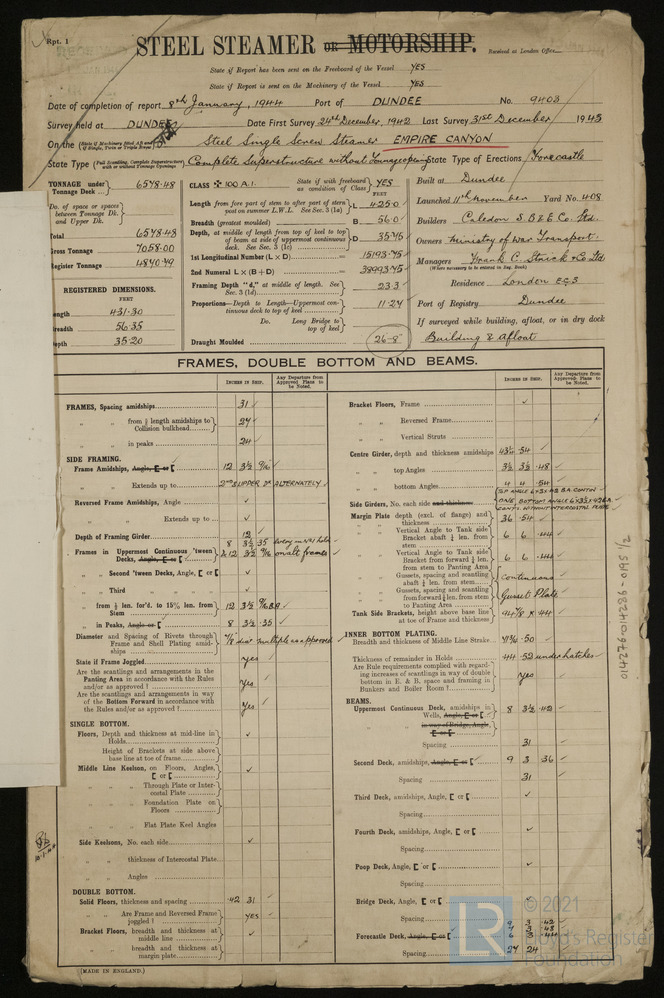 Rpt. 1
STEEL STEAMER OR MOTORSHIP.
Received at London Office
State if Report has been sent on the Freeboard of the Vessel YES
State if Report is sent on the Machinery of the Vessel YES
Date of completion of report 8th January, 1944 Port of DUNDEE No. 9403
Survey held at DUNDEE Date First Survey 24th December, 1942 Last Survey 31st December 1943
On the Steel Single Screw Steamer EMPIRE CANYON
State Type Complete Superstructure without Tonnage opening State Type of Erections Forecastle
TONNAGE under Tonnage Deck 6548.48
Do. of space or spaces between Tonnage Dk. and Upper Dk.
Total 6548.48
Gross Tonnage 7058.00
Register Tonnage 4870.49
REGISTERED DIMENSIONS.
FEET
Length 431.30
Breadth 56.35
Depth 35.20
CLASS ✠ 100 A.1. State if with freeboard as condition of Class YES
FEET
Length from fore part of stem to after part of stern post on summer L.W.L. See Sec. 3 (1a) L 425.0
Breadth (greatest moulded) B 56.0
Depth, at middle of length from top of keel to top of beam at side of uppermost continuous deck. See Sec. 3 (1c) D 35.75
1st Longitudinal Number (L × D) 15193.75
2nd Numeral L × (B + D) 38993.75
Framing Depth "d," at middle of length. See Sec. 3 (1d) 23.3
Proportions—Depth to Length—Uppermost continuous deck to top of keel 11.24
Do. Long Bridge to top of keel
Draught Moulded 26-8
Built at Dundee
Launched 11th November Yard No. 408
Builders Caledon S.B & E Co. Ltd.
Owners Ministry of War Transport.
Managers Frank C. Strick & Co Ltd
(Where necessary to be entered in Reg. Book)
Residence London EC3
Port of Registry Dundee
If surveyed while building, afloat, or in dry dock
Building & Afloat
FRAMES, DOUBLE BOTTOM AND BEAMS.
INCHES IN SHIP.
Any Departure from Approved Plans to be Noted.
INCHES IN SHIP.
Any Departure from Approved Plans to be Noted.
FRAMES, Spacing amidships 31
" " from ⅕ length amidships to Collision bulkhead 27
" " in peaks 24
SIDE FRAMING.
Frame Amidships, Angle, E or [ 12 3½ 9/16
" " Extends up to 2nd & UPPER DK ALTERNATELY
Reversed Frame Amidships, Angle
" " Extends up to
Depth of Framing Girder 12
Frames in Uppermost Continuous 'tween Decks, Angle, E or [ 8 3½ .35
& 12 3½ 9/16 on alt frames
" Second 'tween Decks, Angle, E or [
" Third " " "
" from ⅕ len. for'd. to 15% len. from Stem 12 3½ 9/16 BA
" in Peaks, Angle or [ 8 3½ .35
Diameter and Spacing of Rivets through Frame and Shell Plating amidships 7/8 dia multiple as approved
State if Frame Joggled yes
Are the scantlings and arrangements in the Panting Area in accordance with the Rules and/or as approved? yes
Are the scantlings and arrangements in way of the Bottom Forward in accordance with the Rules and/or as approved? Yes
SINGLE BOTTOM.
Floors, Depth and thickness at mid-line in Holds
Height of Brackets at side above base line at toe of frame
Middle Line Keelson, on Floors, Angles, E or [
" " Through Plate or Intercostal Plate
" " Foundation Plate on Floors
" " Flat Plate Keel Angles
Side Keelsons, No. each side
" " thickness of Intercostal Plate
" " Angles
DOUBLE BOTTOM.
Solid Floors, thickness and spacing .42 31
" " Are Frame and Reversed Frame joggled? YES
Bracket Floors, breadth and thickness at middle line
" " breadth and thickness at margin plate
Bracket Floors, Frame
" " Reversed Frame
" " Vertical Struts
Centre Girder, depth and thickness amidships 43½ .54
" " top Angles 3½ 3½ .48
" " bottom Angles 4 4 .54
Side Girders, No. each side and thickness
ONE BOTTOM ANGLE
Margin Plate depth (excl. of flange) and thickness 36 .54
" Vertical Angle to Tank side Bracket abaft ¼ len. from stem 6 6 .44
" Vertical Angle to Tank side Bracket from forward ¼ len. from stem to Panting Area 6 6 .44
" Gussets, spacing and scantling abaft ¼ len. from stem Continuous
" Gussets, spacing and scantling from forward ¼ len. from stem to Panting Area Gusset Plate
Tank Side Brackets, height above base line at toe of Frame and thickness
INNER BOTTOM PLATING.
Breadth and thickness of Middle Line Strake .50
Thickness of remainder in Holds .44 .52 under hatches
Are Rule requirements complied with regarding increases of scantlings in way of double bottom in E. & B. space and framing in Bunkers and Boiler Room? Yes
BEAMS.
Uppermost Continuous Deck, amidships in Wells, Angle, E or [ 8 3½ .42
" " in way of Bridge, Angle, E or [
Spacing 31
Second Deck, amidships, Angle, E or [ 9 3 .36
Spacing 31
Third Deck, amidships, Angle, E or [
Spacing
Fourth Deck, amidships, Angle, E or [
Spacing
Poop Deck, Angle, E or [
Spacing
Bridge Deck, Angle, E or [
Spacing
Forecastle Deck, Angle, E or [
9 3 .42
6 3 .44
Spacing 27 24
(MADE IN ENGLAND.)
014276-014286-0195 1/2
LR
© 2021
Lloyd's Register
Foundation